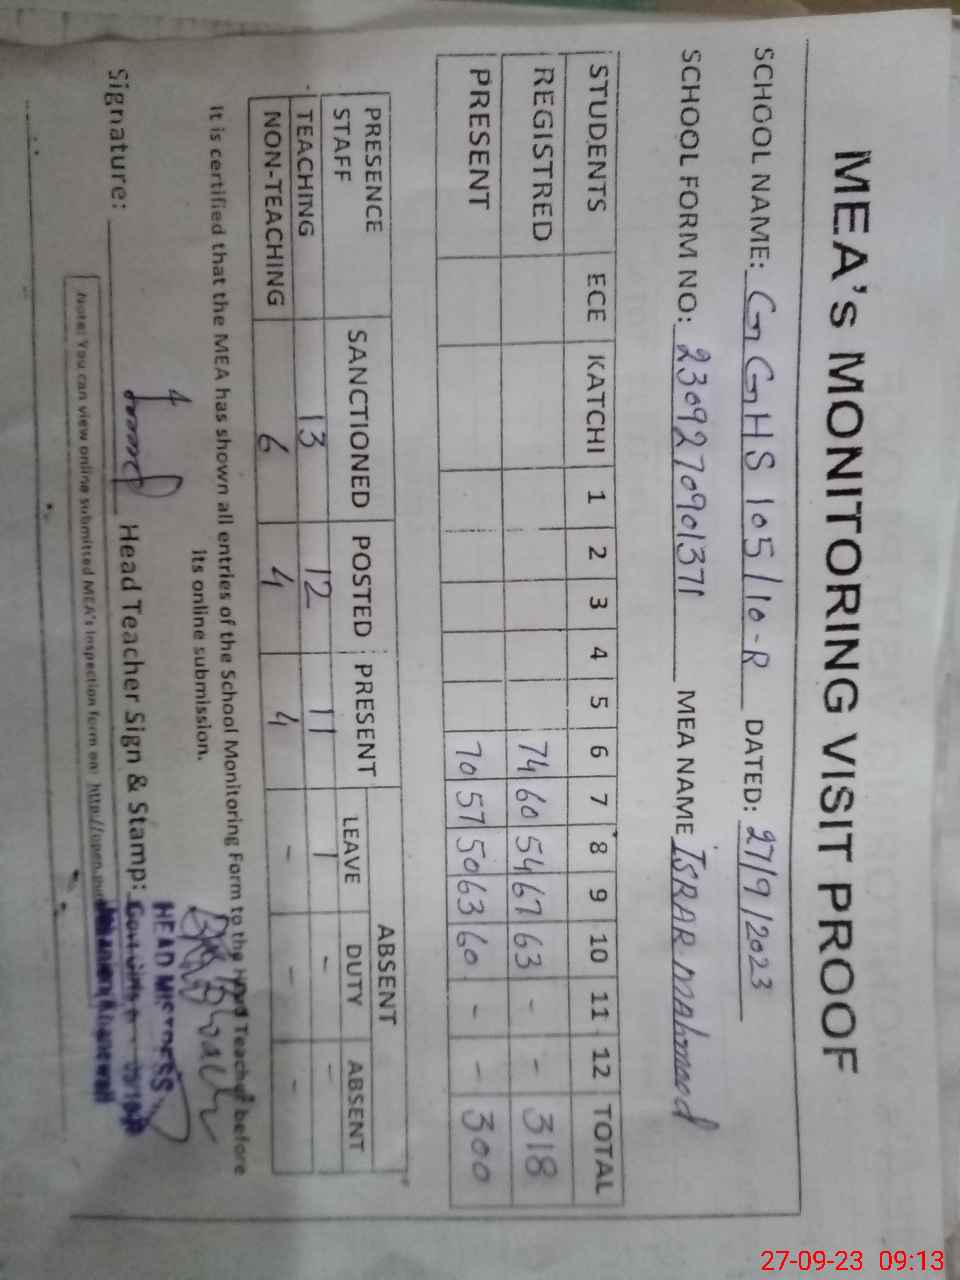 MEA's MONITORING VISIT PROOF
SCHOOL NAME: GGHS 105/10-R DATED: 27/9/2023
SCHOOL FORM NO: 2309270901371 MEA NAME ISRAR MAHMOOD
STUDENTS ECE KATCHI 1 2 3 4 5 6 7 8 9 10 11 12 TOTAL
REGISTRED 74 60 54 67 63 - - 318
PRESENT 70 57 50 63 60 - - 300
PRESENCE STAFF SANCTIONED POSTED PRESENT ABSENT
LEAVE DUTY ABSENT
TEACHING 13 12 11 1 - -
NON-TEACHING 6 4 4 - - -
It is certified that the MEA has shown all entries of the School Monitoring Form to the Head Teacher before
its online submission.
Signature: Head Teacher Sign & Stamp:
HEAD MISTRESS
Note: You can view online submitted MEA's Inspection form on: http://open.
27-09-23 09:13